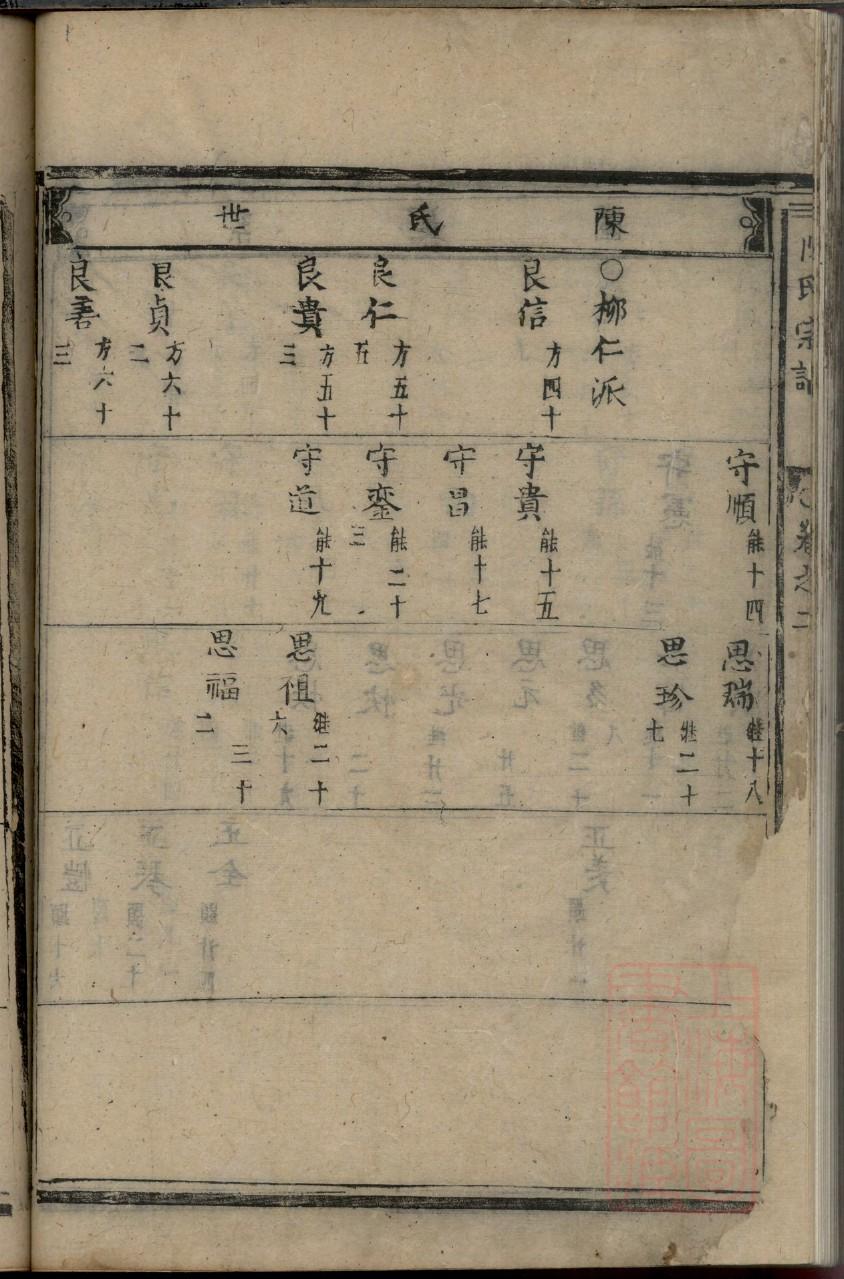 陳氏世
○柳仁派
良信 方四十
良仁 方五十五
良貴 方五十三
良貞 方六十二
良善 方六十三
守順 能十四
守貴 能十五
守昌 能十七
守鑾 能二十三
守道 能十九
思瑞 継十八
思珍 継二十七
思祖 継二十六
思福 三十二
陳氏宗譜
卷之二